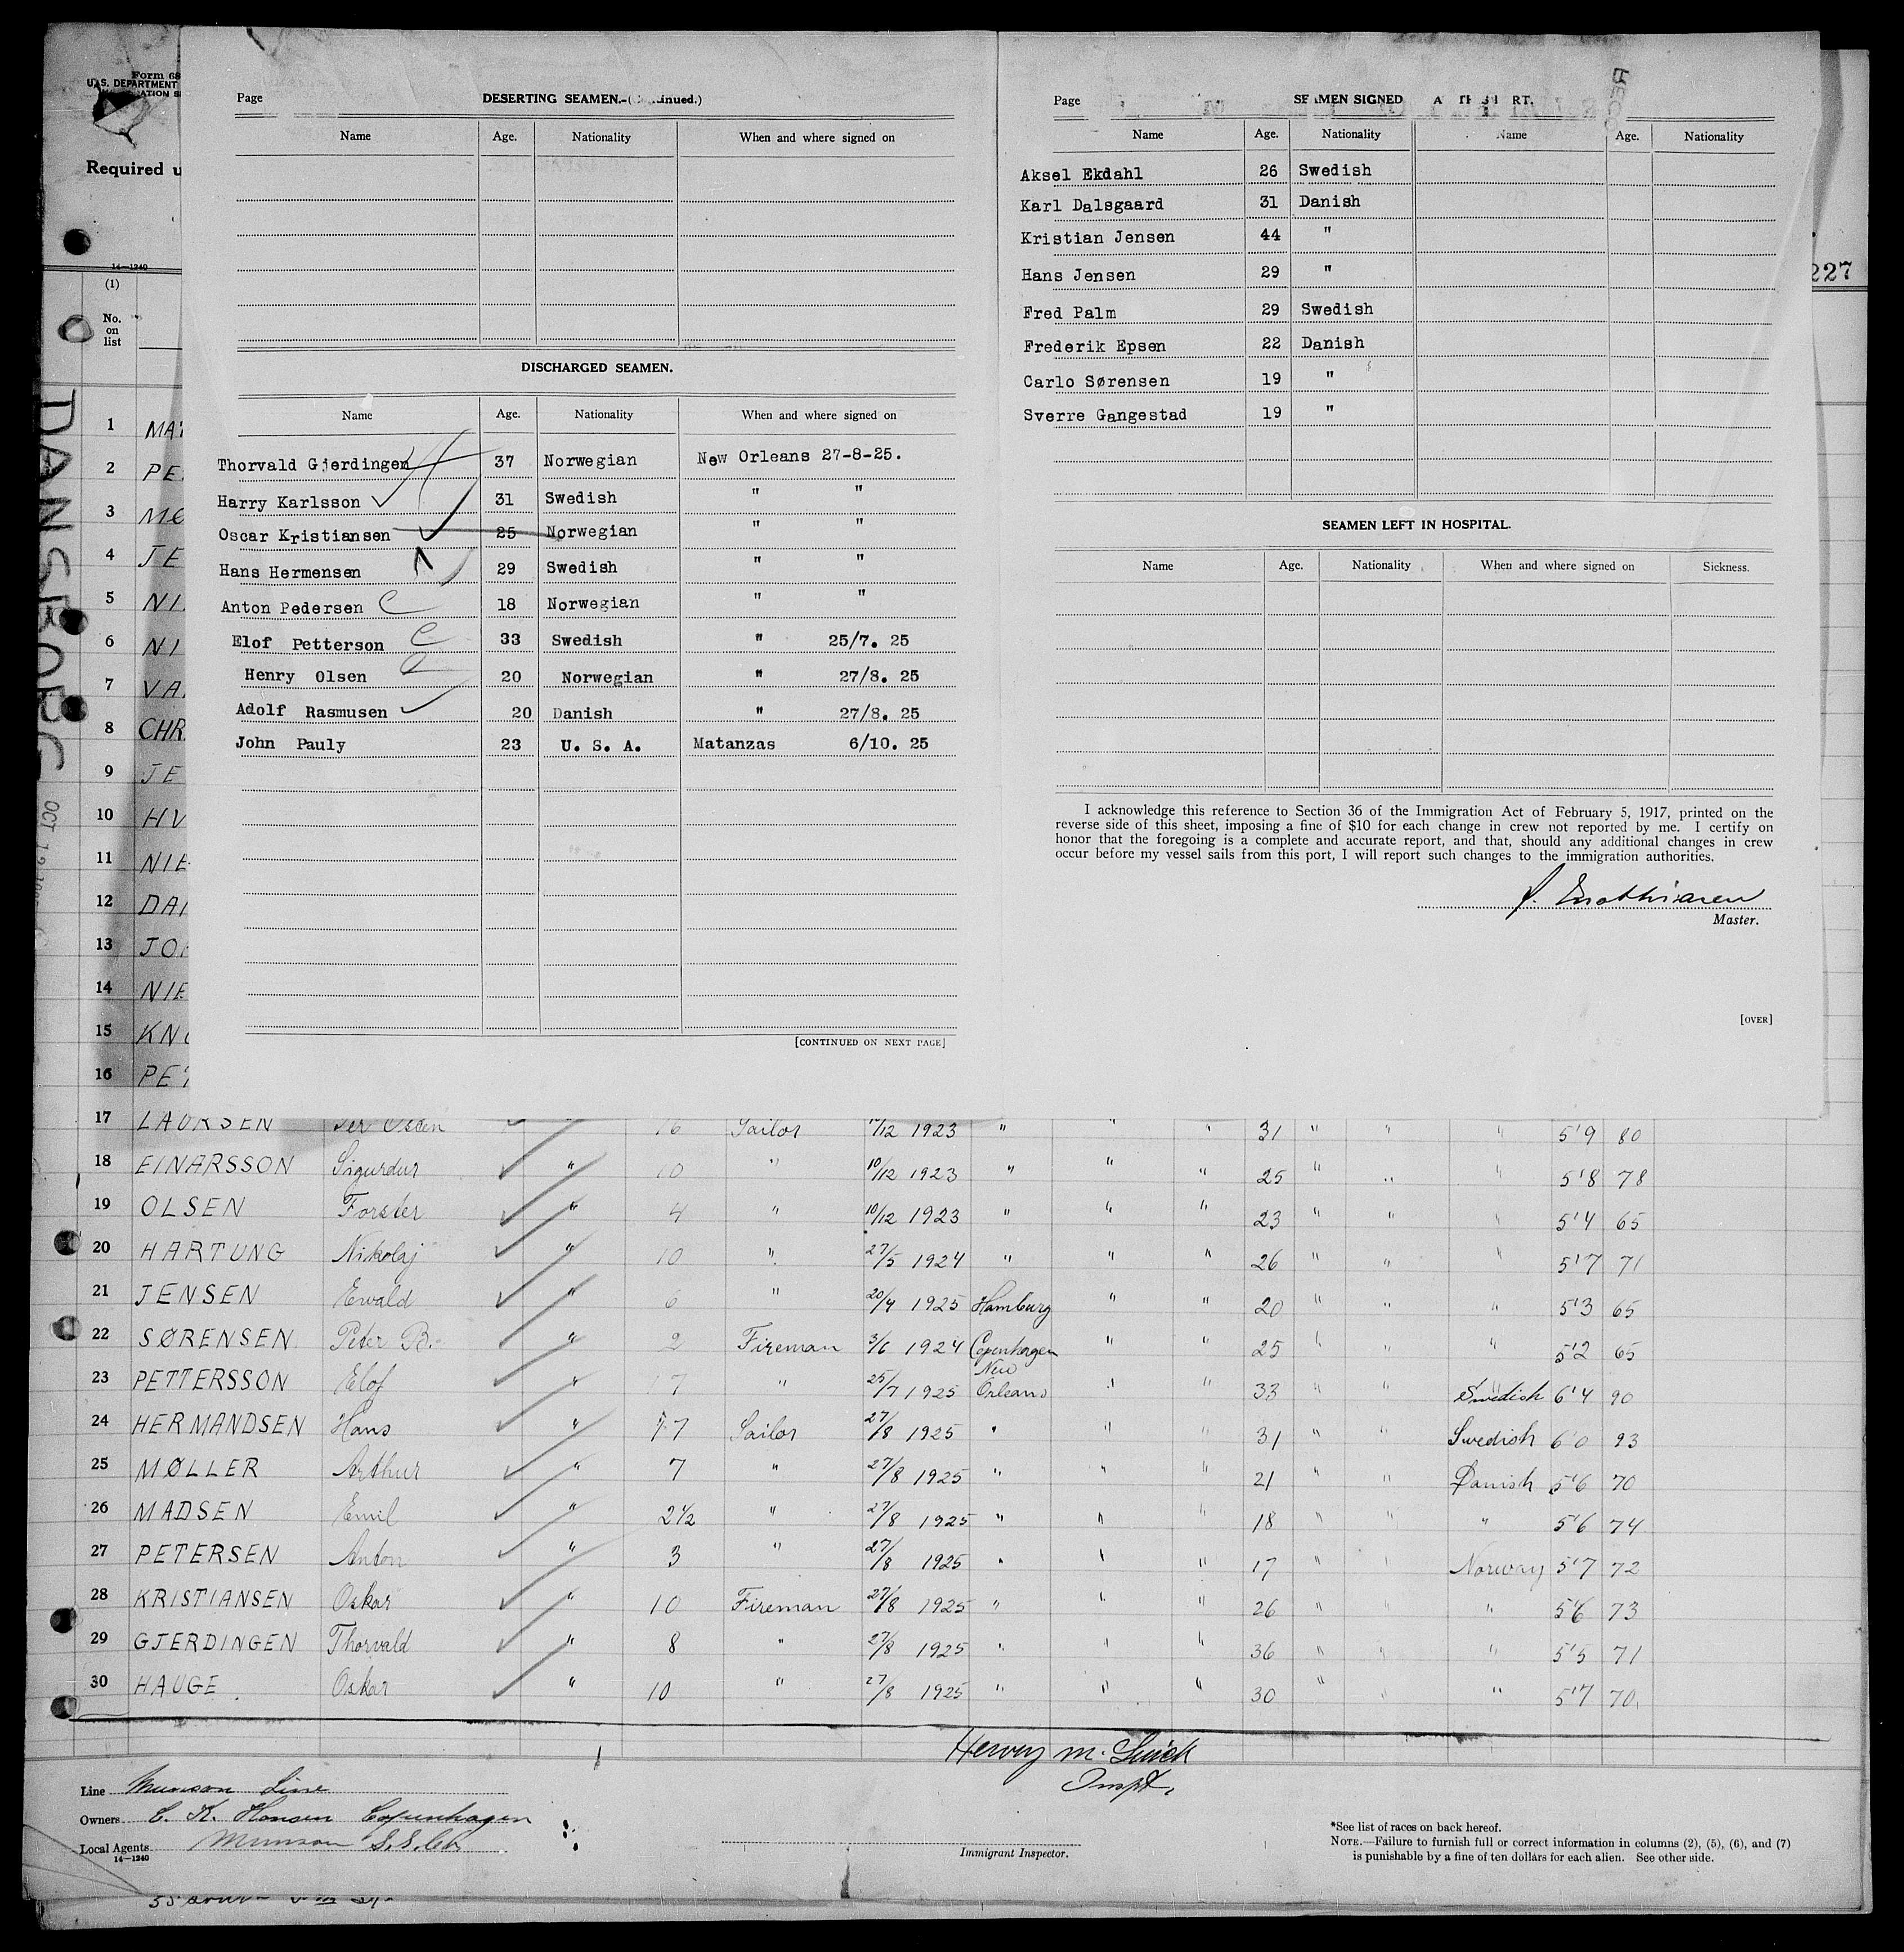 Form 68
U.S. DEPARTMENT
Required u
14—1240
(1)
No.
on
list
DANSBORG
227
Page DESERTING SEAMEN.
Name Age. Nationality When and where signed on
DISCHARGED SEAMEN.
Name Age. Nationality When and where signed on
Thorvald Gjerdingen 37 Norwegian New Orleans 27-8-25.
Harry Karlsson 31 Swedish " "
Oscar Kristiansen 25 Norwegian " "
Hans Hermensen 29 Swedish " "
Anton Pedersen 18 Norwegian " "
Elof Petterson 33 Swedish " 25/7. 25
Henry Olsen 20 Norwegian " 27/8. 25
Adolf Rasmusen 20 Danish " 27/8. 25
John Pauly 23 U. S. A. Matanzas 6/10. 25
[CONTINUED ON NEXT PAGE]
Page SEAMEN SIGNED
Name Age. Nationality Name Age. Nationality
Aksel Ekdahl 26 Swedish
Karl Dalsgaard 31 Danish
Kristian Jensen 44 "
Hans Jensen 29 "
Fred Palm 29 Swedish
Frederik Epsen 22 Danish
Carlo Sørensen 19 "
Sverre Gangestad 19 "
SEAMEN LEFT IN HOSPITAL.
Name Age. Nationality When and where signed on Sickness.
I acknowledge this reference to Section 36 of the Immigration Act of February 5, 1917, printed on the
reverse side of this sheet, imposing a fine of $10 for each change in crew not reported by me. I certify on
honor that the foregoing is a complete and accurate report, and that, should any additional changes in crew
occur before my vessel sails from this port, I will report such changes to the immigration authorities.
Master.
[OVER]
1 MAT
2 PE
3 MO
4 JE
5 NI
6 NI
7 VA
8 CHR
9 JE
10 HV
11 NIE
12 DAN
13 JO
14 NIE
15 KNU
16 PET
17 LAURSEN 16 Sailor 1/12 1923 " " " 31 " " " 5'9 80
18 EINARSSON Sigurdur " 10 " 10/12 1923 " " " 25 " " " 5'8 78
19 OLSEN Forster " 4 " 10/12 1923 " " " 23 " " " 5'4 65
20 HARTUNG Nikolaj " 10 " 27/5 1924 " " " 26 " " " 5'7 71
21 JENSEN Ewald " 6 " 20/4 1925 Hamburg " " 20 " " " 5'3 65
22 SØRENSEN Peter B. " 2 Fireman 3/6 1924 Copenhagen " " 25 " " " 5'2 65
23 PETTERSSON Elof " 17 " 25/7 1925 New Orleans " " 33 " " Swedish 6'4 90
24 HERMANDSEN Hans " 17 Sailor 27/8 1925 " " " 31 " " Swedish 6'0 93
25 MØLLER Arthur " 7 " 27/8 1925 " " " 21 " " Danish 5'6 70
26 MADSEN Emil " 2½ " 27/8 1925 " " " 18 " " " 5'6 74
27 PETERSEN Anton " 3 " 27/8 1925 " " " 17 " " Norway 5'7 72
28 KRISTIANSEN Oskar " 10 Fireman 27/8 1925 " " " 26 " " " 5'6 73
29 GJERDINGEN Thorvald " 8 " 27/8 1925 " " " 36 " " " 5'5 71
30 HAUGE Oskar " 10 " 27/8 1925 " " " 30 " " " 5'7 70
Inspt,
Line Munson Line
Owners C. K. Hansen Copenhagen
Local Agents Munson S.S. Co.
14—1240
Immigrant Inspector.
*See list of races on back hereof.
NOTE.—Failure to furnish full or correct information in columns (2), (5), (6), and (7)
is punishable by a fine of ten dollars for each alien. See other side.